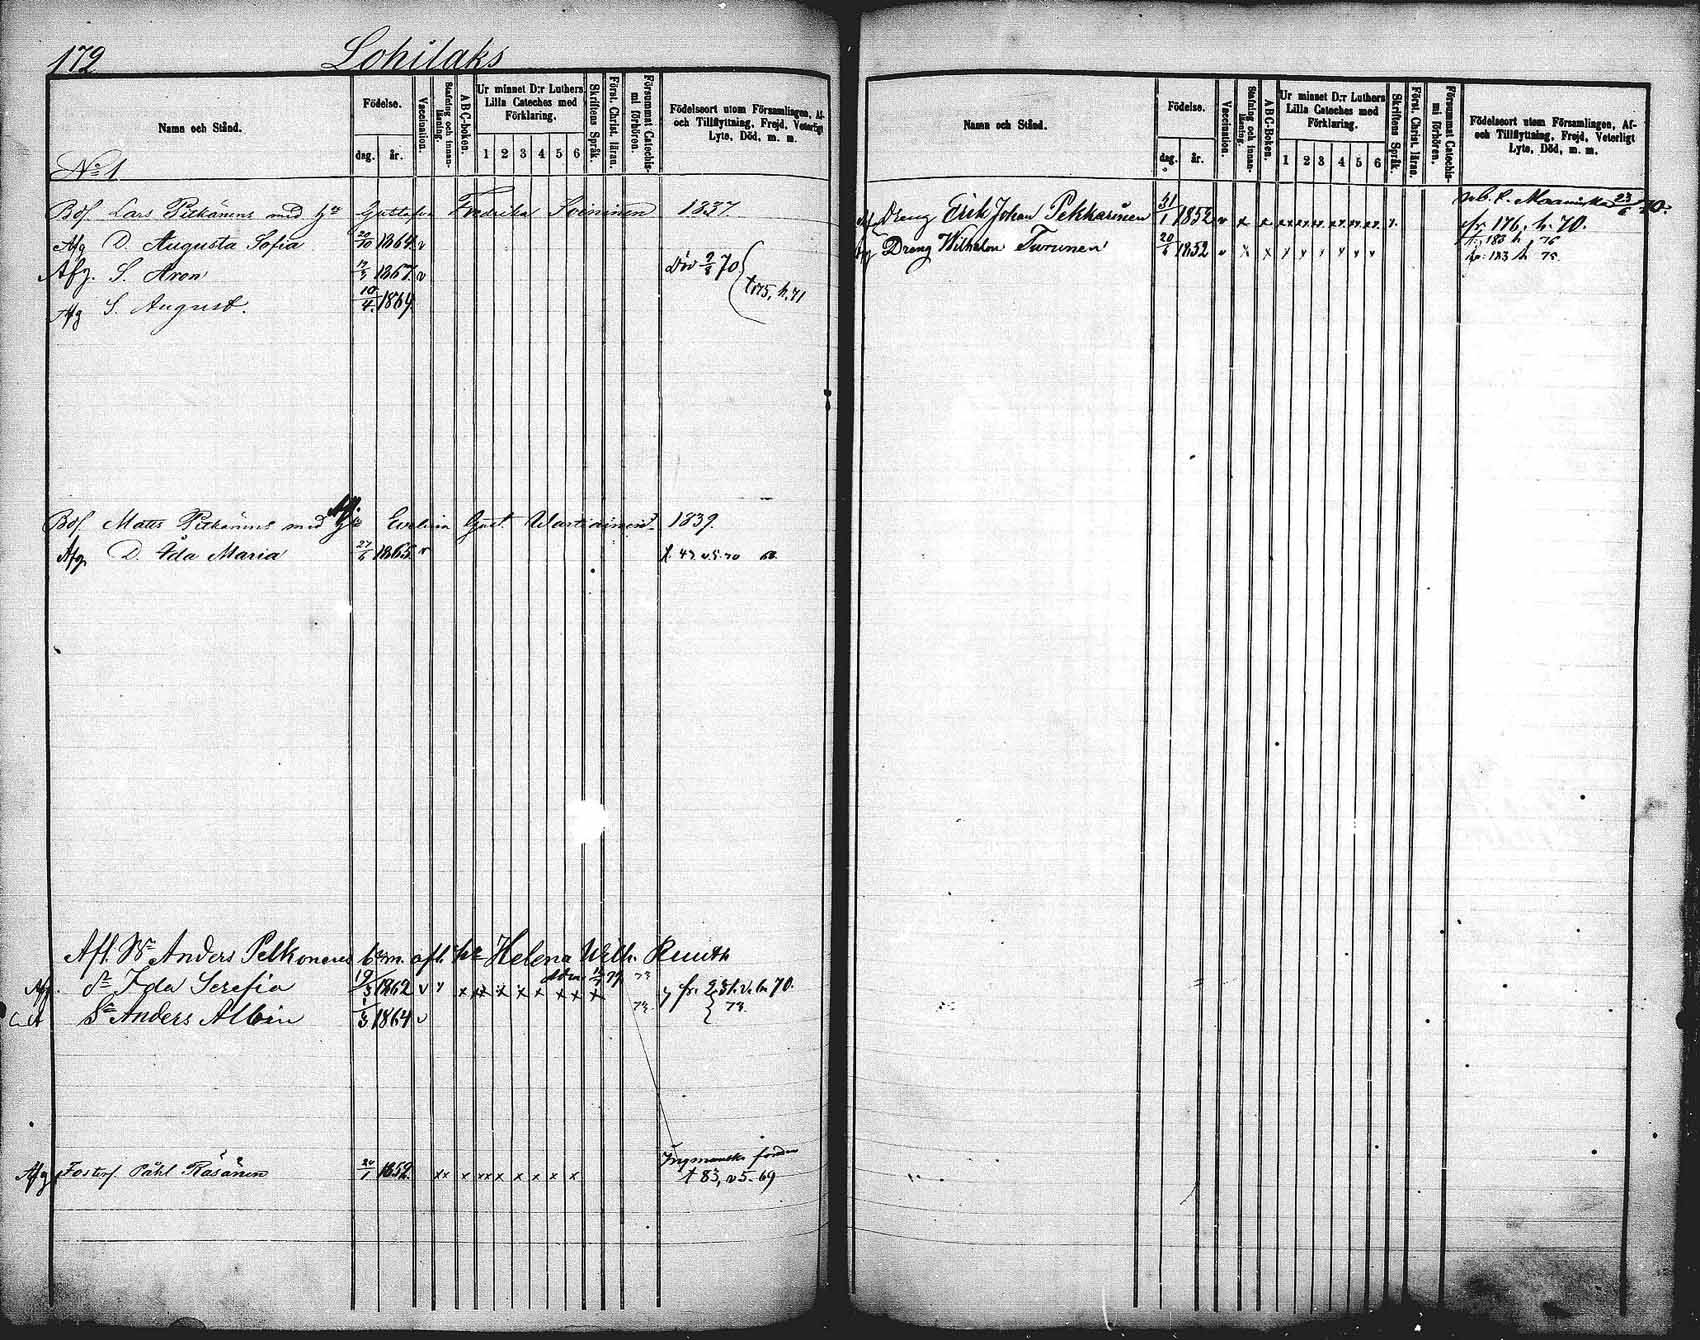 172
Lohilaks
Namn och Stånd.
Födelse.
dag.
år.
Vaccination.
Stafning och innan-läsning.
A B C-boken.
Ur minnet D:r Luthers Lilla Cateches med Förklaring.
1 2 3 4 5 6
Skriftens Språk.
Först. Christ. läran.
Försummat Catechis-mi förhören.
Födelseort utom Församlingen, Af- och Tillflyttning, Frejd, Veterligt Lyte, Död, m. m.
No 1
Bdf. Lars Pitkänens med Fredrika Soininen 1837.
Afg D. Augusta Sofia 20/10 1864 v
Afg. S. Aron 1867 v Död 70
Afg S. August. 10/4 1869. t 175, h. 71
Bdf. Matts Pitkänens med Evelina Gust. Wartiainen 1839.
Afg D. Ida Maria 27/6 1865 v
Afl. Anders Pelkonens Helena Wilh. Ruuth
Ida Serefia 19/3 1862 v v x x x x x x x x fr. 70.
Anders Albin 1/3 1864 v 73.
Afg Fosters. Påhl Räsänen 1852 xx x xx x x x x x
t 83, v 5-69
Namn och Stånd.
Födelse.
dag.
år.
Vaccination.
Stafning och innan-läsning.
A B C-boken.
Ur minnet D:r Luthers Lilla Cateches med Förklaring.
1 2 3 4 5 6
Skriftens Språk.
Först. Christ. läran.
Försummat Catechis-mi förhören.
Födelseort utom Församlingen, Af- och Tillflyttning, Frejd, Veterligt Lyte, Död, m. m.
Maaninka 23/6 70.
Dreng Erik Johan Pekkarinen 31/1 1852 v x x xx xx xx xx xx xx x. fr. 176, h. 70.
t. 183 h 76
Dreng Wilhelm Turunen 1852 v x x x x x x x x 183 h 75.